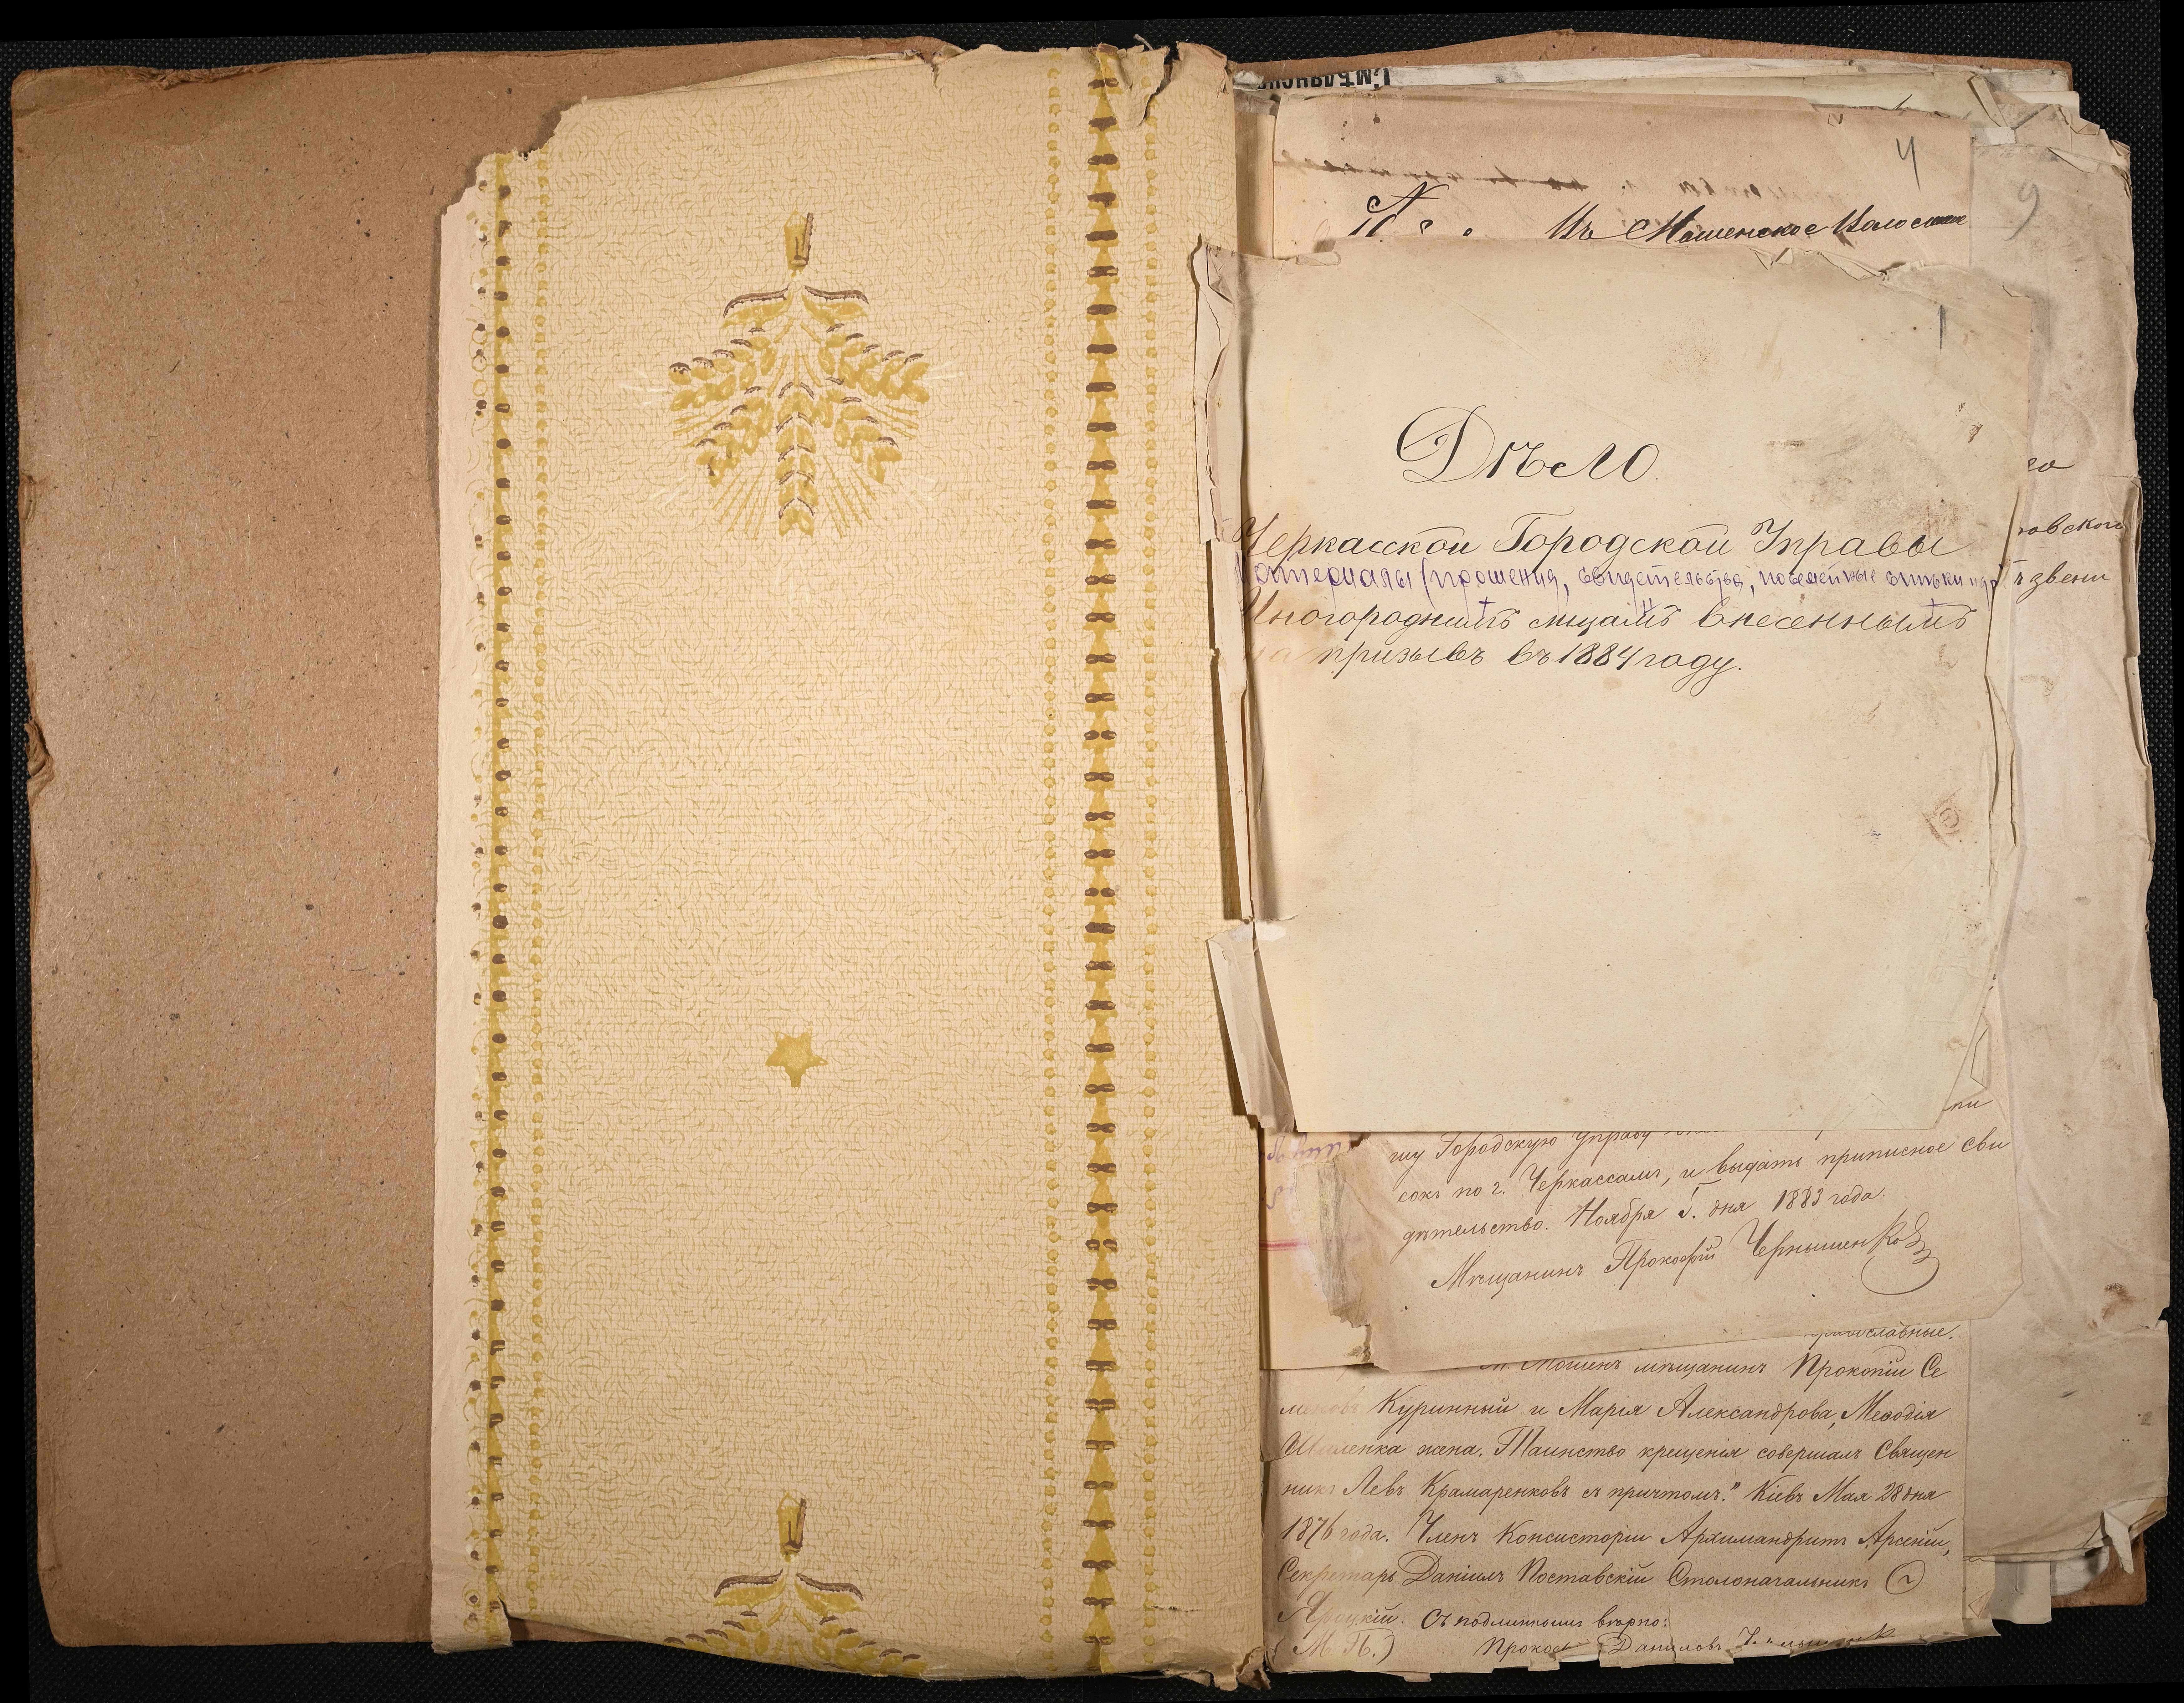 4
9
№ Въ Мошенское Волосное
1
Дѣло
Черкасской Городской Управы
Материалы (прошения, свидетельства, посемейные списки и др)
Иногороднимъ лицамъ внесеннымъ
на призывъ въ 1884 году.
овского
звени
шу Городскую Управу
сокъ по г. Черкассамъ, и выдать приписное сви
дѣтельство. Ноября 5. дня 1883 года.
Мѣщанинъ Прокофій Чернышенко
православные.
М. Мошенъ мѣщанинъ Прокопій Се
Куринный и Марія Александрова, Меѳодія
жена. Таинство крещенія совершалъ Священ
никъ Левъ Крамаренковъ съ причтомъ." Кіевъ Мая 28 дня
1876 года. Членъ Консисторіи Архимандритъ Арсеній,
Секретарь Даніилъ Поставскій Столоначальникъ
Яроцкій. Съ подлиннымъ вѣрно:
(М. П.) Даниловъ